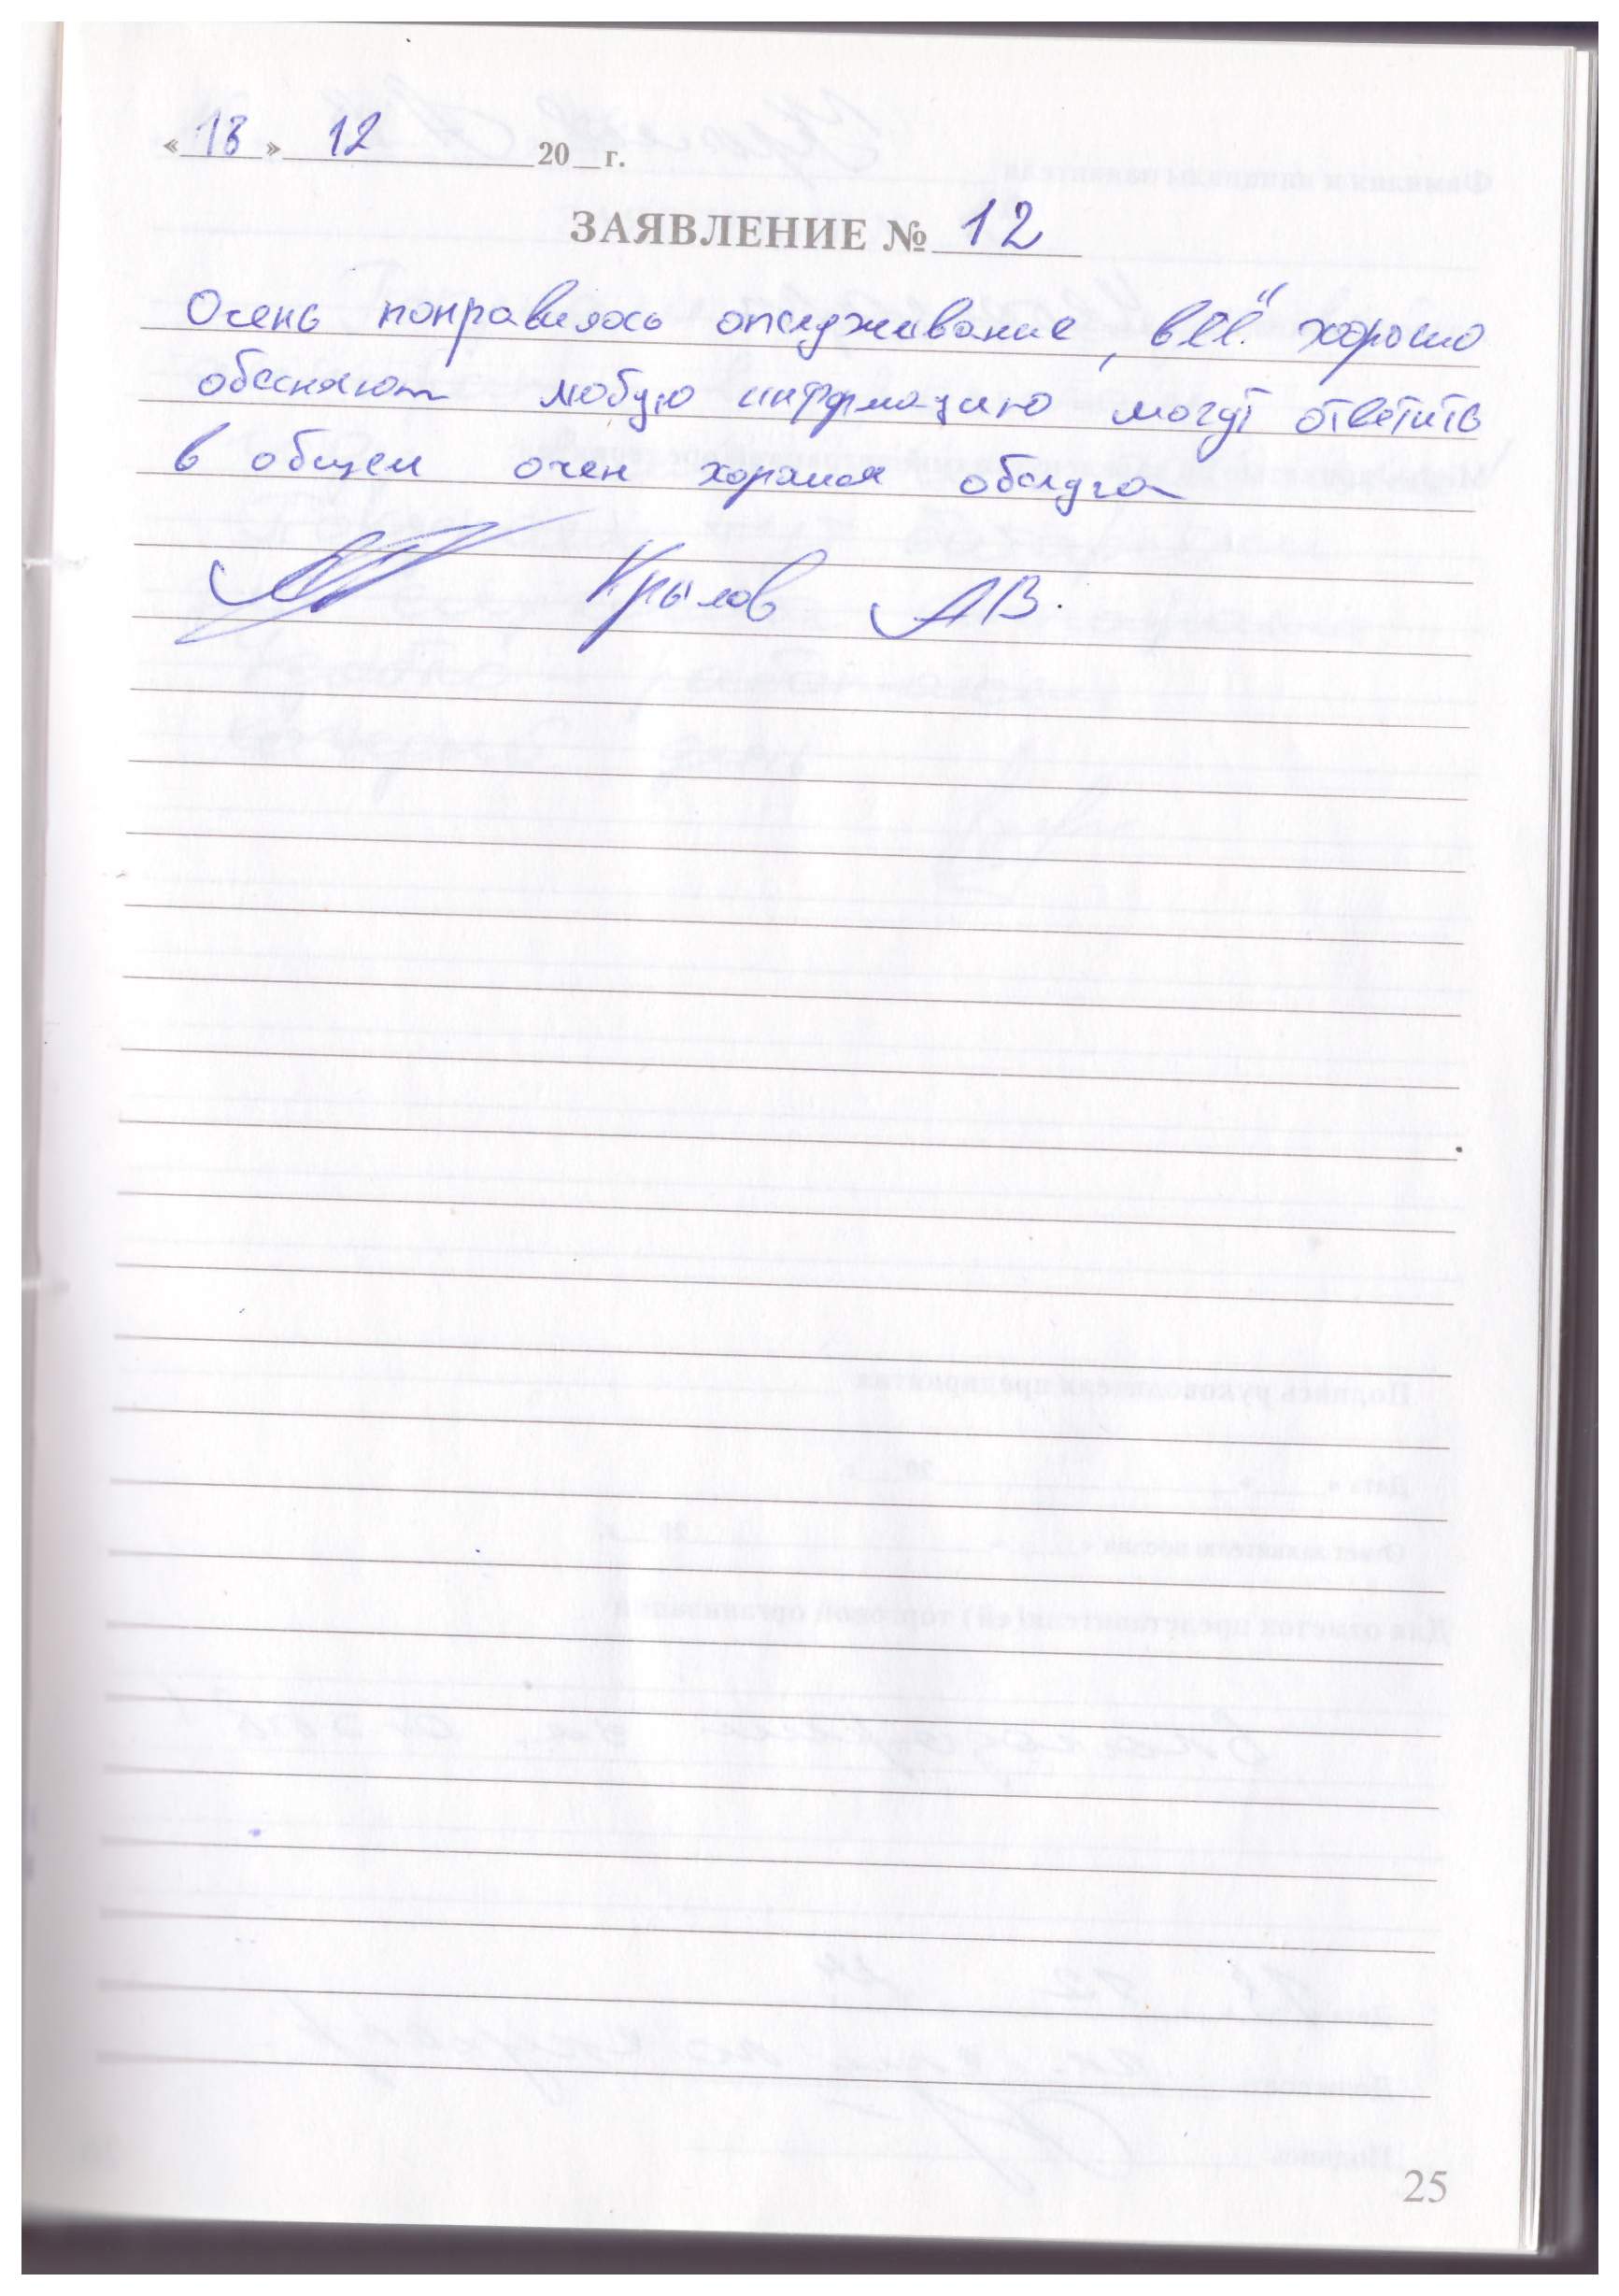 «18» 12 20__г.
ЗАЯВЛЕНИЕ № 12
Очень понравилось опслуживание, всё хорошо
обесняют любую информацию могут ответить
в общем очен хорошая обслуга
Крылов АВ.
25